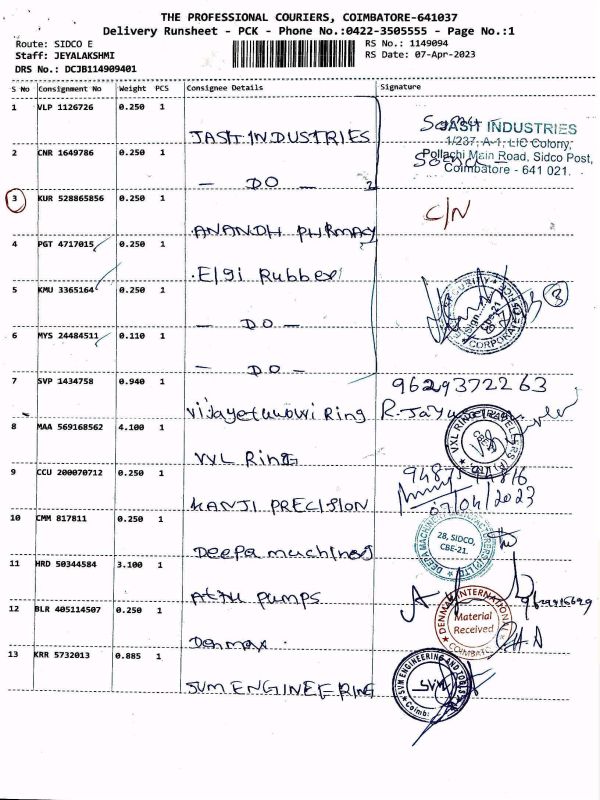 THE PROFESSIONAL COURIERS, COIMBATORE-641037
Delivery Runsheet - PCK - Phone No.:0422-3505555 - Page No.:1
Route: SIDCO E
RS No.: 1149094
Staff: JEYALAKSHMI
RS Date: 07-Apr-2023
DRS No.: DCJB114909401
S No Consignment No Weight PCS Consignee Details Signature
1 VLP 1126726 0.250 1
JASH INDUSTRIES
JASH INDUSTRIES
1/237, A-1, LIC Colony,
Pollachi Main Road, Sidco Post,
Coimbatore - 641 021.
2 CNR 1649786 0.250 1
— DO —
3 KUR 528865856 0.250 1
C/N
ANANDH PHRMACY
4 PGT 4717015 0.250 1
Elgi Rubber
5 KMU 3365164 0.250 1
SECURITY
CBE-21
CORPORATE
3
— DO —
6 MYS 24484511 0.110 1
— DO —
7 SVP 1434758 0.940 1
9629372263
Ring
8 MAA 569168562 4.100 1
VXL RING TRAVELLERS (P) LTD
VXL Ring
9 CCU 200070712 0.250 1
07/04/2023
KANJI PRECISION
10 CMM 817811 0.250 1
28, SIDCO,
CBE-21.
Deepa machines
11 HRD 50344584 3.100 1
pumps
12 BLR 405114507 0.250 1
DENMAX INTERNATIONAL
Material
Received
Denmax.
13 KRR 5732013 0.885 1
SVM ENGINEERING
SVM